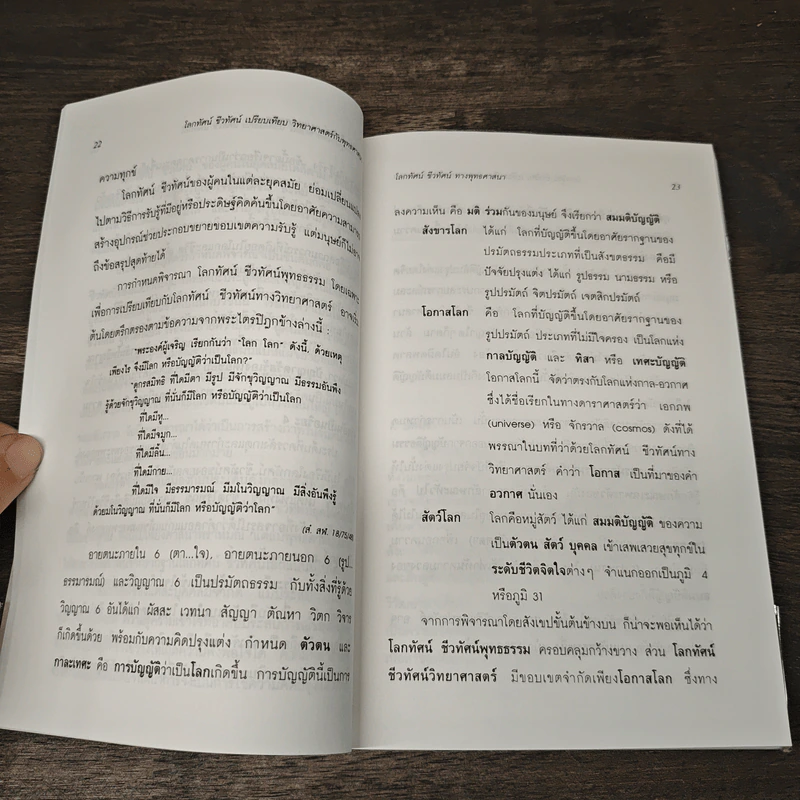 22
โลกทัศน์ ชีวทัศน์ เปรียบเทียบ วิทยาศาสตร์กับพุทธศาสนา
ความทุกข์
โลกทัศน์ ชีวทัศน์ของผู้คนในแต่ละยุคสมัย ย่อมเปลี่ยนแปลง
ไปตามวิธีการรับรู้ที่มีอยู่หรือประดิษฐ์คิดค้นขึ้นโดยอาศัยความสามารถ
สร้างอุปกรณ์ช่วยประกอบขยายขอบเขตความรับรู้ แต่มนุษย์ก็ไม่อาจ
ถึงข้อสรุปสุดท้ายได้
การกำหนดพิจารณา โลกทัศน์ ชีวทัศน์พุทธธรรม โดยเฉพาะ
เพื่อการเปรียบเทียบกับโลกทัศน์ ชีวทัศน์ทางวิทยาศาสตร์ อาจเริ่ม
ต้นโดยตรึกตรองตามข้อความจากพระไตรปิฎกข้างล่างนี้ :
"พระองค์ผู้เจริญ เรียกกันว่า "โลก โลก" ดังนี้, ด้วยเหตุ
เพียงไร จึงมีโลก หรือบัญญัติว่าเป็นโลก?"
"ดูกรสมิทธิ ที่ใดมีตา มีรูป มีจักขุวิญญาณ มีธรรมอันพึง
รู้ด้วยจักขุวิญญาณ ที่นั่นก็มีโลก หรือบัญญัติว่าเป็นโลก
ที่ใดมีหู...
ที่ใดมีจมูก...
ที่ใดมีลิ้น...
ที่ใดมีกาย...
ที่ใดมีใจ มีธรรมารมณ์ มีมโนวิญญาณ มีสิ่งอันพึงรู้
ด้วยมโนวิญญาณ ที่นั่นก็มีโลก หรือบัญญัติว่าโลก"
(สํ. สฬ. 18/75/48)
อายตนะภายใน 6 (ตา...ใจ), อายตนะภายนอก 6 (รูป...
ธรรมารมณ์) และวิญญาณ 6 เป็นปรมัตถธรรม กับทั้งสิ่งที่รู้ด้วย
วิญญาณ 6 อันได้แก่ ผัสสะ เวทนา สัญญา ตัณหา วิตก วิจาร
ก็เกิดขึ้นด้วย พร้อมกับความคิดปรุงแต่ง กำหนด ตัวตน และ
กาละเทศะ คือ การบัญญัติว่าเป็นโลกเกิดขึ้น การบัญญัตินี้เป็นการ
โลกทัศน์ ชีวทัศน์ ทางพุทธศาสนา
23
ลงความเห็น คือ มติ ร่วมกันของมนุษย์ จึงเรียกว่า สมมติบัญญัติ
สังขารโลก ได้แก่ โลกที่บัญญัติขึ้นโดยอาศัยรากฐานของ
ปรมัตถธรรมประเภทที่เป็นสังขตธรรม คือมี
ปัจจัยปรุงแต่ง ได้แก่ รูปธรรม นามธรรม หรือ
รูปปรมัตถ์ จิตปรมัตถ์ เจตสิกปรมัตถ์
โอกาสโลก คือ โลกที่บัญญัติขึ้นโดยอาศัยรากฐานของ
รูปปรมัตถ์ ประเภทที่ไม่มีใจครอง เป็นโลกแห่ง
กาลบัญญัติ และ ทิสา หรือ เทศะบัญญัติ
โอกาสโลกนี้ จัดว่าตรงกับโลกแห่งกาล-อวกาศ
ซึ่งได้ชื่อเรียกในทางดาราศาสตร์ว่า เอกภพ
(universe) หรือ จักรวาล (cosmos) ดังที่ได้
พรรณาในบทที่ว่าด้วยโลกทัศน์ ชีวทัศน์ทาง
วิทยาศาสตร์ คำว่า โอกาส เป็นที่มาของคำ
อวกาศ นั่นเอง
สัตว์โลก โลกคือหมู่สัตว์ ได้แก่ สมมติบัญญัติ ของความ
เป็นตัวตน สัตว์ บุคคล เข้าเสพเสวยสุขทุกข์ใน
ระดับชีวิตจิตใจต่างๆ จำแนกออกเป็นภูมิ 4
หรือภูมิ 31
จากการพิจารณาโดยสังเขปขั้นต้นข้างบน ก็น่าจะพอเห็นได้ว่า
โลกทัศน์ ชีวทัศน์พุทธธรรม ครอบคลุมกว้างขวาง ส่วน โลกทัศน์
ชีวทัศน์วิทยาศาสตร์ มีขอบเขตจำกัดเพียงโอกาสโลก ซึ่งทาง